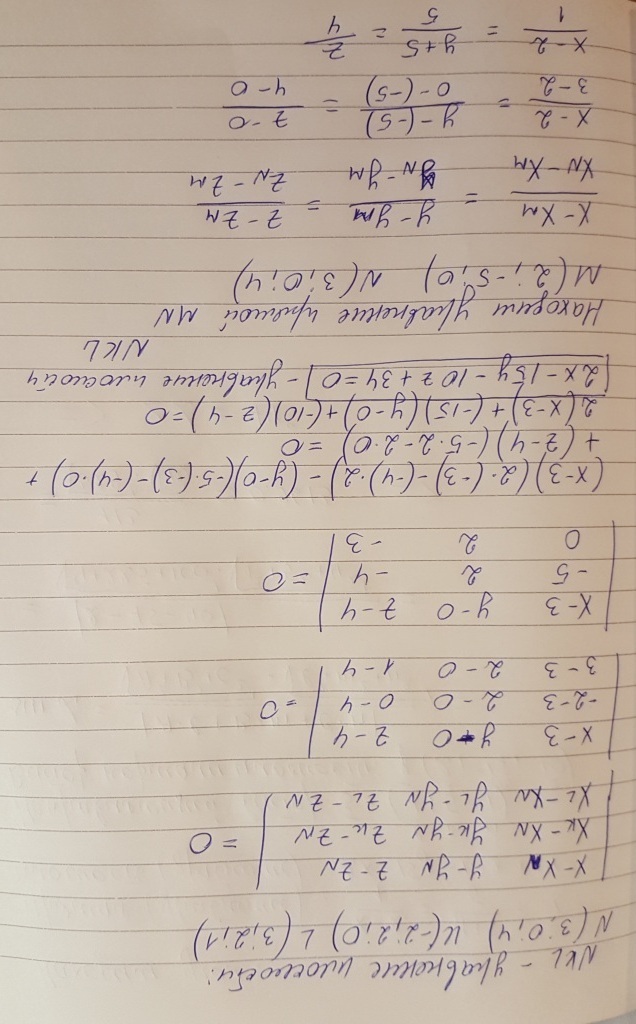 NKL - уравнение плоскости:
N(3;0;4) K(-2;2;0) L(3;2;1)
| x-xN y-yN z-zN |
| xK-xN yK-yN zK-zN | = 0
| xL-xN yL-yN zL-zN |
| x-3 y-0 z-4 |
| -2-3 2-0 0-4 | = 0
| 3-3 2-0 1-4 |
| x-3 y-0 z-4 |
| -5 2 -4 | = 0
| 0 2 -3 |
(x-3)(2·(-3)-(-4)·2) - (y-0)(-5·(-3)-(-4)·0) +
+ (z-4)(-5·2-2·0) = 0
2(x-3)+(-15)(y-0)+(-10)(z-4)=0
2x-15y-10z+34=0 - уравнение плоскости
NKL
Находим уравнение прямой MN
M(2;-5;0) N(3;0;4)
(x-xM)/(xN-xM) = (y-yM)/(yN-yM) = (z-zM)/(zN-zM)
(x-2)/(3-2) = (y-(-5))/(0-(-5)) = (z-0)/(4-0)
(x-2)/1 = (y+5)/5 = z/4